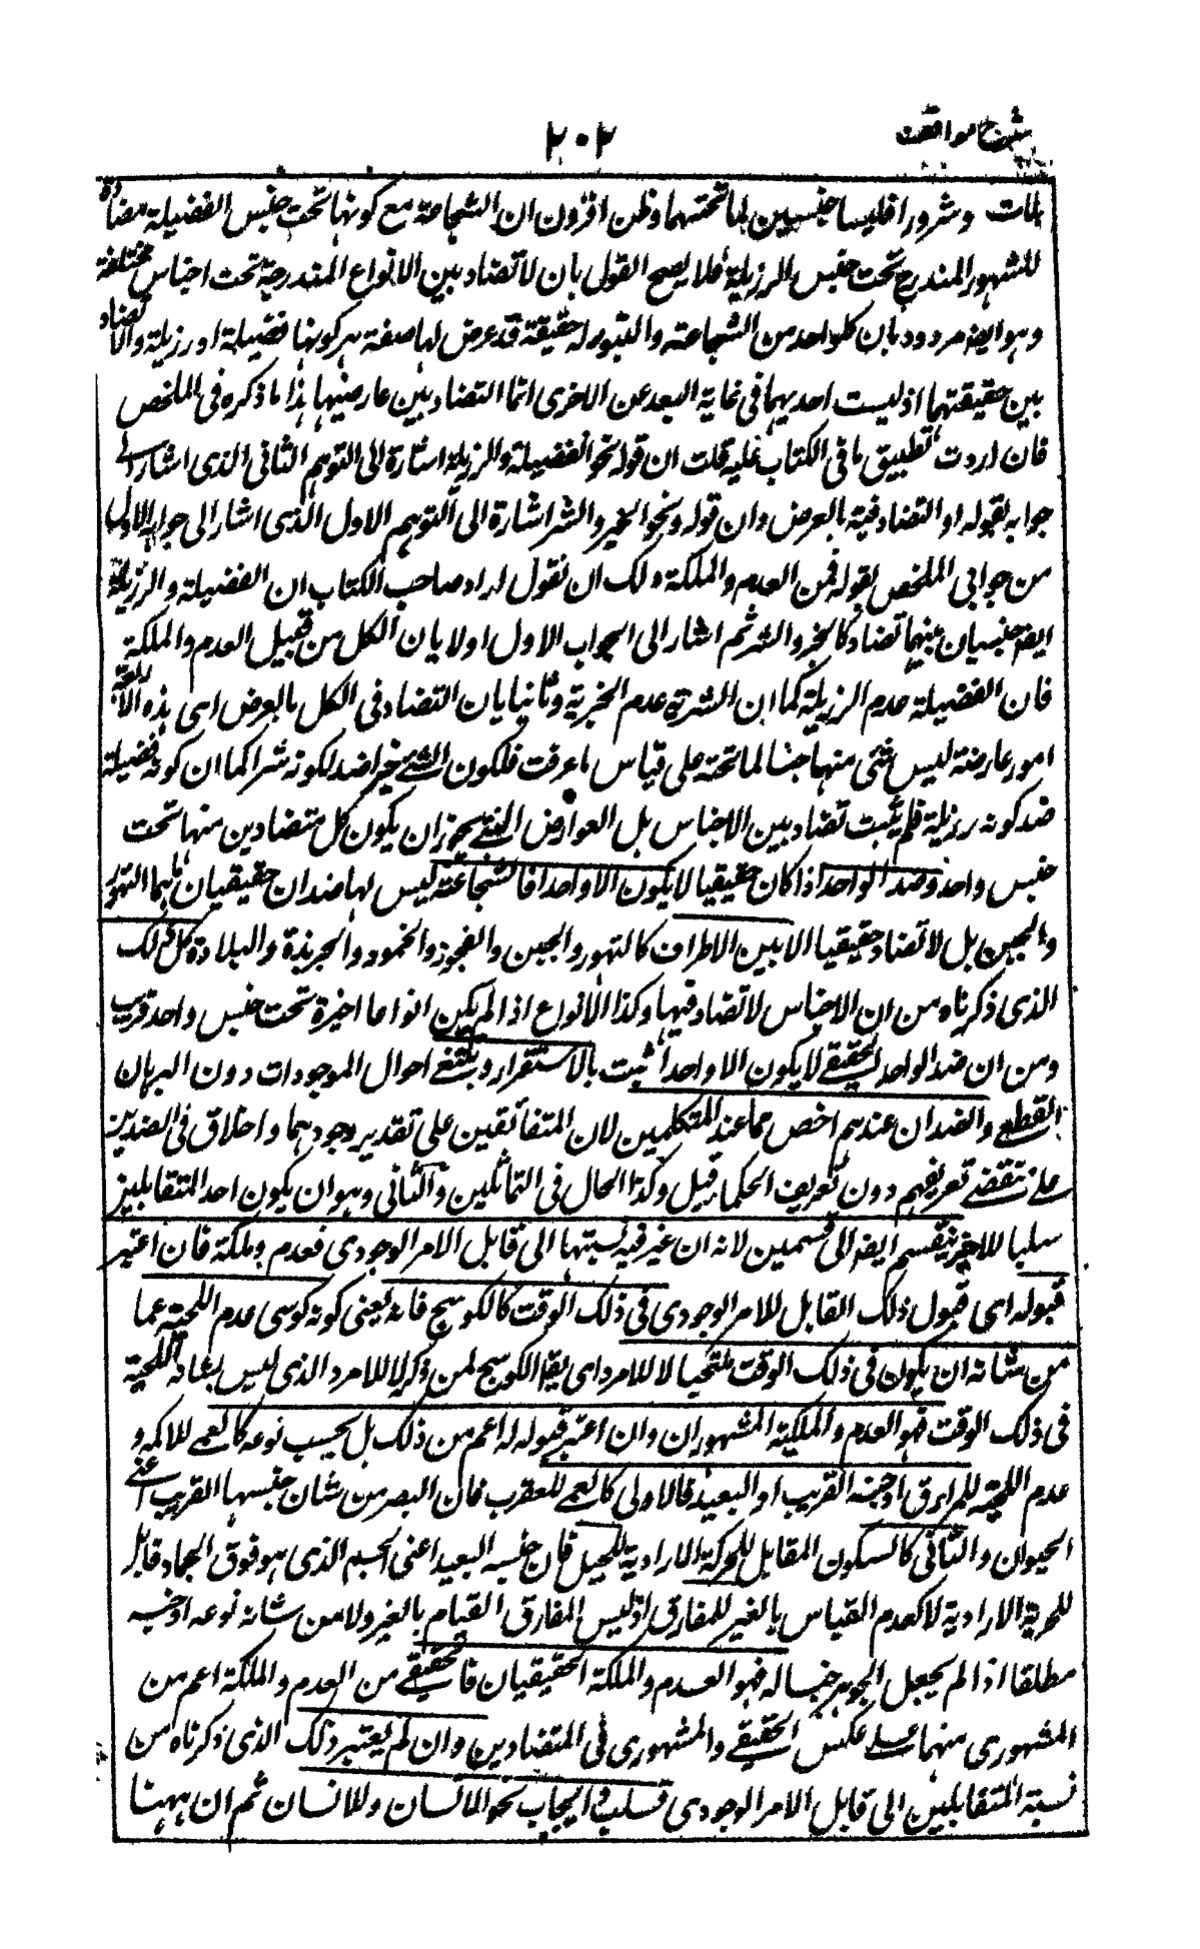 شرح مواقف
٢٠٢
لمات وشرورا فليسا جنسين لما تحتهما وظن اخرون ان الشجاعة مع كونها تحت جنس الفضيلة مضادة
للتهور المندرج تحت جنس الرزيلة فلا يصح القول بان لا تضاد بين الانواع المندرجة تحت اجناس مختلفة
وهو ايضا مردود بان كلا واحد من الشجاعة والتهور له حقيقة قد عرض لها صفة هر كونها فضيلة اور زيلة والا تضاد
بين حقيقتهما اذ ليست احديهما فى غاية البعد عن الاخرى انما التضاد بين عارضيها هذا ما ذكره فى الملخص
فان اردت تطبيق ما فى الكتاب عليه قلت ان قوله نحو الفضيلة والرزيلة اشارة الى التوهم الثانى الذى اشار الى
جوابه بقوله او التضاد فيه بالعرض وان قوله ونحو الخير والشر اشارة الى التوهم الاول الذى اشار الى جوابه الاول
من جوابى الملخص بقوله فمن العدم والملكة ولك ان تقول اراد صاحب الكتاب ان الفضيلة والرزيلة
ايضا جنسيان بينهما تضاد كالخير والشر ثم اشار الى الجواب الاول اولا بان الكل من قبيل العدم والملكة
فان الفضيلة عدم الرزيلة كما ان الشرية عدم الخيرية وثانيا بان التضاد فى الكل بالعرض اى هذه الاربعة
امور عارضة ليس شئ منها جنسا لما تحته على قياس ما عرفت فلكون الشئ خيرا ضد لكونه شرا كما ان كونه فضيلة
ضد كونه رزيلة فلم يثبت تضاد بين الاجناس بل العوارض التى يجوز ان يكون كل متضادين منها تحت
جنس واحد وضد الواحد اذا كان حقيقيا لا يكون الا واحدا فالشجاعة ليس لها ضدان حقيقيان هما التهور
والجبن بل لا تضاد حقيقيا الا بين الاطراف كالتهور والجبن والفجور والخمود والجربذة والبلادة كل ذلك
الذى ذكرناه من ان الاجناس لا تضاد فيها وكذا الانواع اذا لم يكن انواعا اخيرة تحت جنس واحد قريب
ومن ان ضد الواحد الحقيقى لا يكون الا واحدا ثبت بالاستقرار وبتتبع احوال الموجودات دون البرهان
القطعى والضدان عندهم اخص مما عند المتكلمين لان المتفائقين على تقدير وجودهما داخلاق فى الضدين
على مقتضى تعريفهم دون تعريف الحكماء قيل وكذا الحال فى التماثلين والثانى وهو ان يكون احد المتقابلين
سلبا للاخر ينقسم ايضا الى قسمين لانه ان عبر فيه نسبتها الى قابل الامر الوجودى فعدم وملكة فان اعتبر
قبوله اى قبول ذلك القابل للامر الوجودى فى ذلك الوقت كالكوسج فانه يعنى كونه كوسى عدم اللحية عما
من شانه ان يكون فى ذلك الوقت ملتحيا لا للامرد اى يقا الكوسج لمن ذكر لا للامرد الذى ليس بعاد اللحية
فى ذلك الوقت فهو العدم والملكة المشهوران وان اعتبر قبوله له اعم من ذلك بل بحسب نوعه كالعمى للاكمه و
عدم اللحية للمراة او جنسه القريب او البعيد فالاولى كالعمى للعقرب فان البصر من شان جنسها القريب اعنى
الحيوان والثانى كالسكون المقابل للحركة الارادية للجبل فان جنسه البعيد اعنى الجسم الذى هو فوق الجماد قابل
للحركة الارادية لا كعدم القياس بالغير للمفارق اذ ليس المفارق القيام بالغير ولا من شانه نوعه او جنسه
مطلقا اذا لم يجعل الجوهر جنسا له فهو العدم والملكة الحقيقيان فالحقيقى من العدم والملكة اعم من
المشهورى منهما على عكس الحقيقى والمشهورى فى المتضادين وان لم يعتبر ذلك الذى ذكرناه من
نسبة المتقابلين الى قابل الامر الوجودى فسلب وايجاب نحو الانسان وللانسان ثم ان ههنا